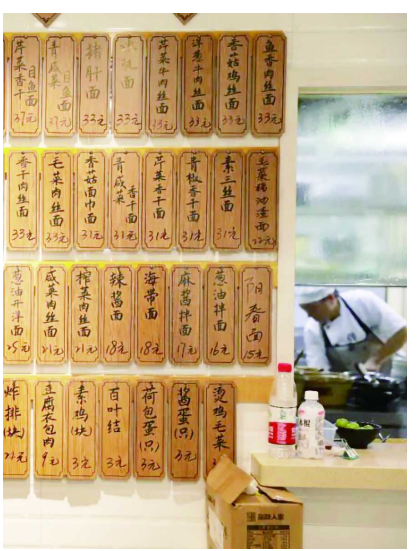 芹菜香干目鱼面 37元
青咸菜目鱼面 37元
猪肝面 33元
面 33元
芹菜牛肉丝面 33元
洋葱牛肉丝面 33元
香菇鸡丝面 33元
鱼香肉丝面 33元
香干肉丝面 33元
毛菜肉丝面 33元
香菇面巾面 31元
青咸菜香干面 31元
芹菜香干面 31元
青椒香干面 31元
素三丝面 31元
雪菜猪油渣面 22元
葱油开洋面 25元
咸菜肉丝面 21元
榨菜肉丝面 21元
辣酱面 18元
海带面 18元
麻酱拌面 17元
葱油拌面 16元
阳春面 15元
炸排(块) 21元
豆腐衣包肉 9元
素鸡(块) 3元
百叶结 3元
荷包蛋(只) 3元
酱蛋(只) 3元
烫鸡毛菜